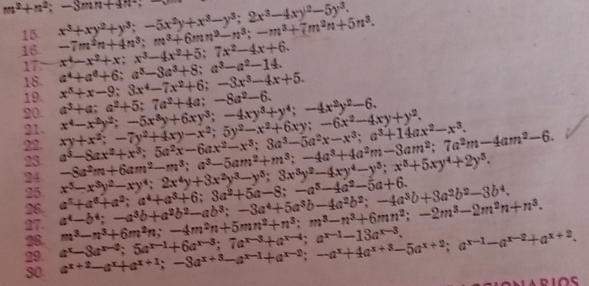 m²+n²; —3mn+4n²;
15. x³+xy²+y³; —5x²y+x³—y³; 2x³—4xy²—5y³.
16. —7m²n+4n³; m³+6mn²—n³; —m³+7m²n+5n³.
17. x⁴—x²+x; x³—4x²+5; 7x²—4x+6.
18. a⁴+a⁶+6; a⁵—3a³+8; a³—a²—14.
19. x⁵+x—9; 3x⁴—7x²+6; —3x³—4x+5.
20. a³+a; a²+5; 7a²+4a; —8a²—6.
21. x⁴—x²y²; —5x³y+6xy³; —4xy³+y⁴; —4x²y²—6.
22. xy+x²; —7y²+4xy—x²; 5y²—x²+6xy; —6x²—4xy+y².
23. a³—8ax²+x³; 5a²x—6ax²—x³; 3a³—5a²x—x³; a³+14ax²—x³.
24. —8a²m+6am²—m³; a³—5am²+m³; —4a³+4a²m—3am²; 7a²m—4am²—6.
25. x⁵—x³y²—xy⁴; 2x⁴y+3x²y³—y⁵; 3x³y²—4xy⁴—y⁵; x⁵+5xy⁴+2y⁵.
26. a⁵+a⁶+a²; a⁴+a³+6; 3a²+5a—8; —a⁵—4a²—5a+6.
27. a⁴—b⁴; —a³b+a²b²—ab³; —3a⁴+5a³b—4a²b²; —4a³b+3a²b²—3b⁴.
28. m³—n³+6m²n; —4m²n+5mn²+n³; m³—n³+6mn²; —2m³—2m²n+n³.
29. aˣ—3aˣ⁻²; 5aˣ⁻¹+6aˣ⁻³; 7aˣ⁻³+aˣ⁻⁴; aˣ⁻¹—13aˣ⁻³.
30. aˣ⁺²—aˣ+aˣ⁺¹; —3aˣ⁺³—aˣ⁻¹+aˣ⁻²; —aˣ+4aˣ⁺³—5aˣ⁺²; aˣ⁻¹—aˣ⁻²+aˣ⁺².